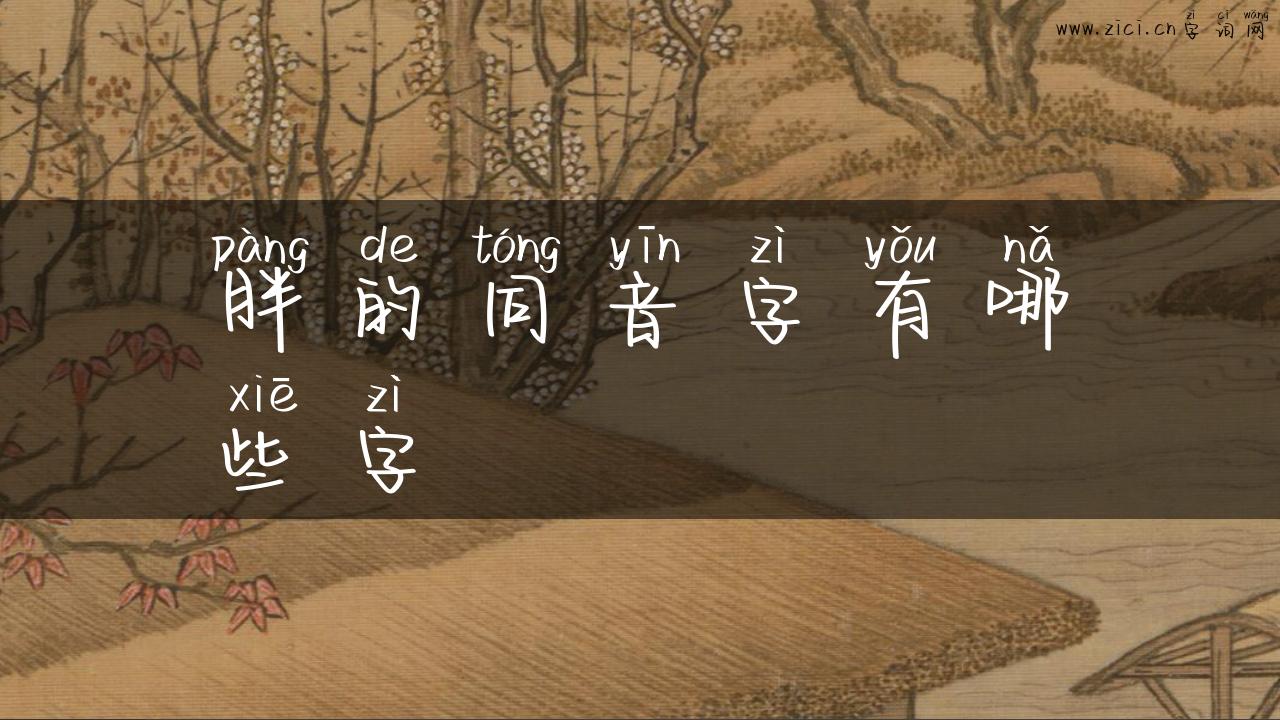 zì cí wǎng
www.zici.cn字词网
pàng de tóng yīn zì yǒu nǎ
胖的同音字有哪
xiē zì
些字